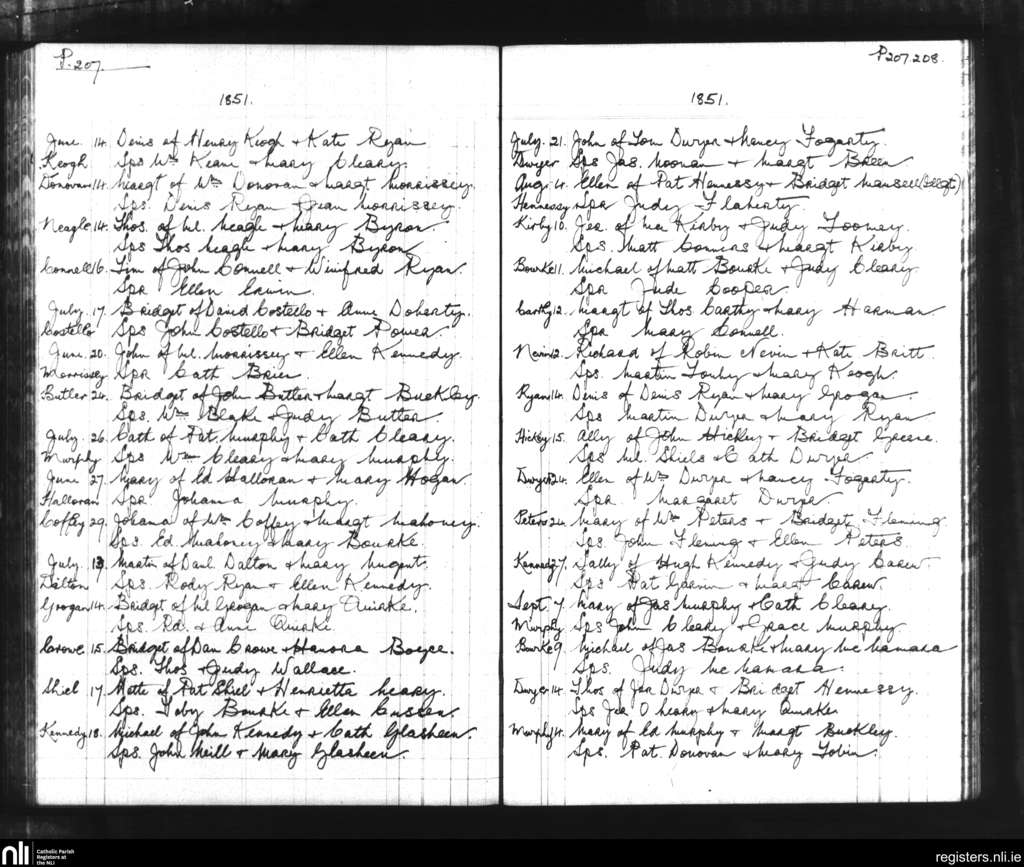 P. 207.
1851.
June. 14. Denis of Henry Keogh & Kate Ryan
Keogh Sps Wm Keane & Mary Cleary.
Donovan 14. Margt of Wm Donovan & Margt Morrissey.
Sps. Denis Ryan & Jean Morrissey.
Neagle 14. Thos. of Ml. Neagle & Mary Byron.
Sps Thos Neagle & Mary Byron.
Connell 16. Tim of John Connell & Winifred Ryan.
Spr Ellen
July. 17. Bridget of David Costello & Anne Doherty.
Costello Sps John Costello & Bridget Power.
June. 20. John of Ml. Morrissey & Ellen Kennedy.
Morrissey Spr Cath Brien.
Butler 24. Bridget of John Butler & Margt Buckley.
Sps. Wm Blake & Judy Butler.
July. 26. Cath of Pat. Murphy & Cath Cleary.
Murphy Sps Wm Cleary & Mary Murphy.
June 27. Mary of Ed Halloran & Mary Hogan.
Halloran Spr. Johana Murphy.
Coffey 29. Johana of Wm Coffey & Margt Mahoney.
Sps. Ed. Mahoney & Mary Bourke.
July. 13. Martin of Danl. Dalton & Mary Nugent.
Dalton Sps. Rody Ryan & Ellen Kennedy.
Grogan 14. Bridget of Ml Grogan & Mary Quirke.
Sps. Rd. & Anne Quirke.
Crowe 15. Bridget of Dan Crowe & Hanora Boyce.
Sps. Thos & Judy Wallace.
Shiel 17. of Pat Shiel & Henrietta Neary.
Sps. Toby Bourke & Ellen Cussen.
Kennedy 18. Michael of John Kennedy & Cath Glasheen.
Sps. John Neill & Mary Glasheen.
P207.208.
1851.
July. 21. John of Tom Dwyer & Nancy Fogarty.
Dwyer Sps Jas. Noonan & Margt Breen
Aug. 4. Ellen of Pat Hennessy & Bridget Mansell
Hennessy Spr Judy Flaherty.
Kirby 10. of Kirby & Judy Toomey.
Sps. Matt Comins & Margt Kirby.
Bourke 11. Michael of Matt Bourke & Judy Cleary.
Spr Jude Cooper
Carthy 12. Margt of Thos Carthy & Mary Harman.
Spr Mary Connell.
Nevin 12. Richard of Robin Nevin & Kate Britt.
Sps. Martin & Mary Keogh.
Ryan 14. Denis of Denis Ryan & Mary Grogan.
Sps Martin Dwyer & Mary Ryan
Hickey 15. Ally of John Hickey & Bridget Greene.
Sps Ml. Shiels & Cath Dwyer.
Dwyer 24. Ellen of Wm Dwyer & Nancy Fogarty.
Spr Margaret Dwyer
Peters 24. Mary of Wm Peters & Bridget Fleming.
Sps. John Fleming & Ellen Peters.
Kennedy 27. Sally of Hugh Kennedy & Judy Carew.
Sps Pat & Margt Carew.
Sept. 7. Mary of Jas Murphy & Cath Cleary.
Murphy Sps John Cleary & Grace Murphy.
Bourke 9. Michael of Jas Bourke & Mary McNamara
Sps. Judy McNamara.
Dwyer 14. Thos of Dwyer & Bridget Hennessy.
Sps & Mary Quirke
Murphy 14. Mary of Ed Murphy & Margt Buckley.
Sps. Pat Donovan & Mary Tobin.
nli Catholic Parish
Registers at
the NLI
registers.nli.ie